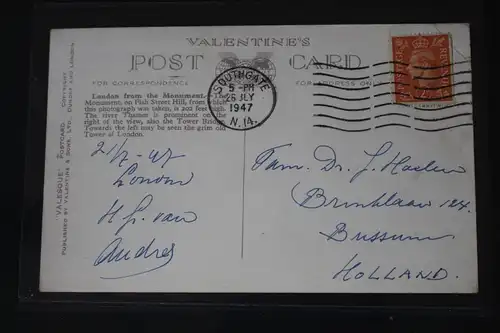 VALENTINE'S
POST CARD
FOR CORRESPONDENCE
FOR ADDRESS ON
London from the Monument.—The
Monument, on Fish Street Hill, from which
this photograph was taken, is 202 feet high.
The river Thames is prominent on the
right of the view, also the Tower Bridge.
Towards the left may be seen the grim old
Tower of London.
"VALESQUE" POSTCARD. COPYRIGHT.
PUBLISHED BY VALENTINE & SONS, LTD., DUNDEE AND LONDON
SOUTHGATE
5 - PM
26 JLY
1947
N.14.
21/7-47
London
H. Gr. van
Andres
Fam. Dr. J.
Brinklaan 124.
Bussum
HOLLAND.